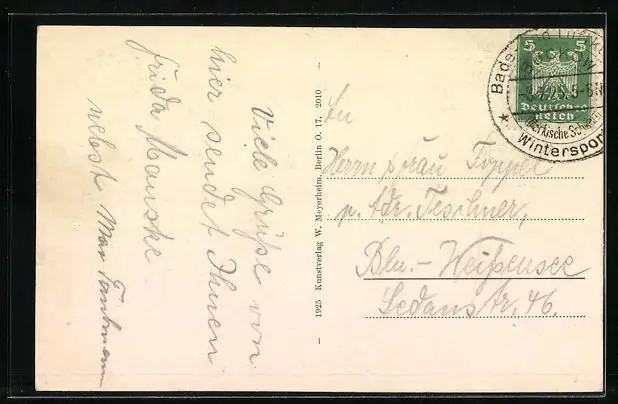 Viele Grüße von
hier sendet Ihnen
Frida Manske
nebst Max
1925 Kunstverlag W. Meyerheim, Berlin O. 17. 2010
An
Herrn & Frau Töppel
p. Adr. Teschner,
Bln.-Weißensee
Sedanstr. 46.
5 5
Deutsches
Reich
Bade
5-6N
Märkische Schweiz
Wintersport